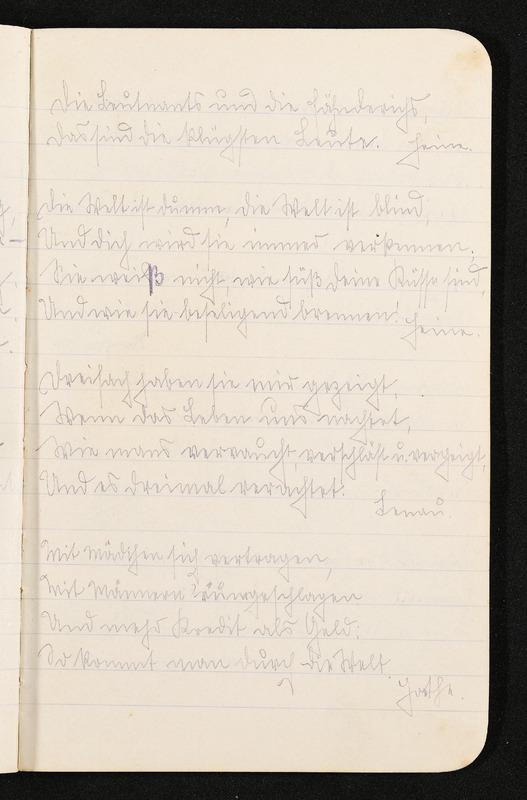 Die Leutnants und die Fähnderichs,
Das sind die klügsten Leute. Heine.
Die Welt ist dumm, die Welt ist blind,
Und dich wird sie immer verkennen;
Sie weiß nicht wie süß deine Küsse sind,
Und wie sie beseligend brennen! Heine.
Dreifach haben sie mir gezeigt,
Wenn das Leben uns nachtet,
Wie mans verraucht, verschläft u. vergeigt,
Und es dreimal verachtet.
Lenau.
Mit Mädchen sich vertragen,
Mit Männern rumgeschlagen
Und mehr Kredit als Geld:
So kommt man durch die Welt.
Goethe.